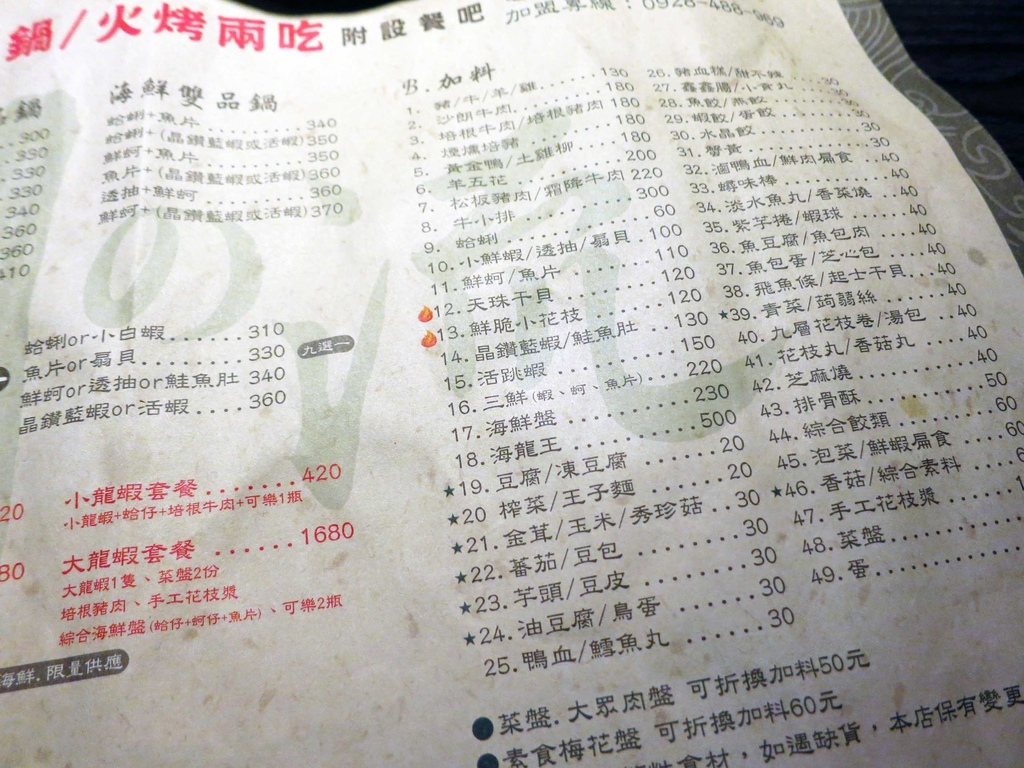 鍋/火烤兩吃 附設餐吧
加盟專線：0928-488-969
品鍋
300
330
330
330
340
360
360
410
海鮮雙品鍋
蛤蜊+魚片 340
蛤蜊+(晶鑽藍蝦或活蝦) 350
鮮蚵+魚片 350
魚片+(晶鑽藍蝦或活蝦) 360
透抽+鮮蚵 360
鮮蚵+(晶鑽藍蝦或活蝦) 370
蛤蜊or小白蝦 310
魚片or扇貝 330
九選一
鮮蚵or透抽or鮭魚肚 340
晶鑽藍蝦or活蝦 360
20
小龍蝦套餐 420
小龍蝦+蛤仔+培根牛肉+可樂1瓶
80
大龍蝦套餐 1680
大龍蝦1隻、菜盤2份
培根豬肉、手工花枝漿
綜合海鮮盤(蛤仔+蚵仔+魚片)、可樂2瓶
海鮮.限量供應
B 加料
1. 豬/牛/羊/雞 130
2. 沙朗牛肉 180
3. 培根牛肉/培根豬肉 180
4. 燻爐培豬 180
5. 黃金鴨/土雞柳 180
6. 羊五花 200
7. 松板豬肉/霜降牛肉 220
8. 牛小排 300
9. 蛤蜊 60
10. 小鮮蝦/透抽/扇貝 100
11. 鮮蚵/魚片 110
12. 天珠干貝 120
13. 鮮脆小花枝 120
14. 晶鑽藍蝦/鮭魚肚 130
15. 活跳蝦 150
16. 三鮮(蝦、蚵、魚片) 220
17. 海鮮盤 230
18. 海龍王 500
★19. 豆腐/凍豆腐 20
★20 榨菜/王子麵 20
★21. 金茸/玉米/秀珍菇 30
★22. 蕃茄/豆包 30
★23. 芋頭/豆皮 30
★24. 油豆腐/鳥蛋 30
25. 鴨血/鱈魚丸 30
26. 豬血糕/甜不辣 30
27. 鑫鑫腸/小貢丸 30
28. 魚餃/燕餃 30
29. 蝦餃/蛋餃 30
30. 水晶餃 30
31. 蟹黃 30
32. 滷鴨血/鮮肉扁食 40
33. 蟳味棒 40
34. 淡水魚丸/香菜燒 40
35. 紫芋捲/蝦球 40
36. 魚豆腐/魚包肉 40
37. 魚包蛋/芝心包 40
38. 飛魚條/起士干貝 40
★39. 青菜/蒟蒻絲 40
40. 九層花枝卷/湯包 40
41. 花枝丸/香菇丸 40
42. 芝麻燒 40
43. 排骨酥 50
44. 綜合餃類 60
45. 泡菜/鮮蝦扁食 60
★46. 香菇/綜合素料
47. 手工花枝漿
48. 菜盤
49. 蛋
●菜盤.大眾肉盤 可折換加料50元
●素食梅花盤 可折換加料60元
食材，如遇缺貨，本店保有變更